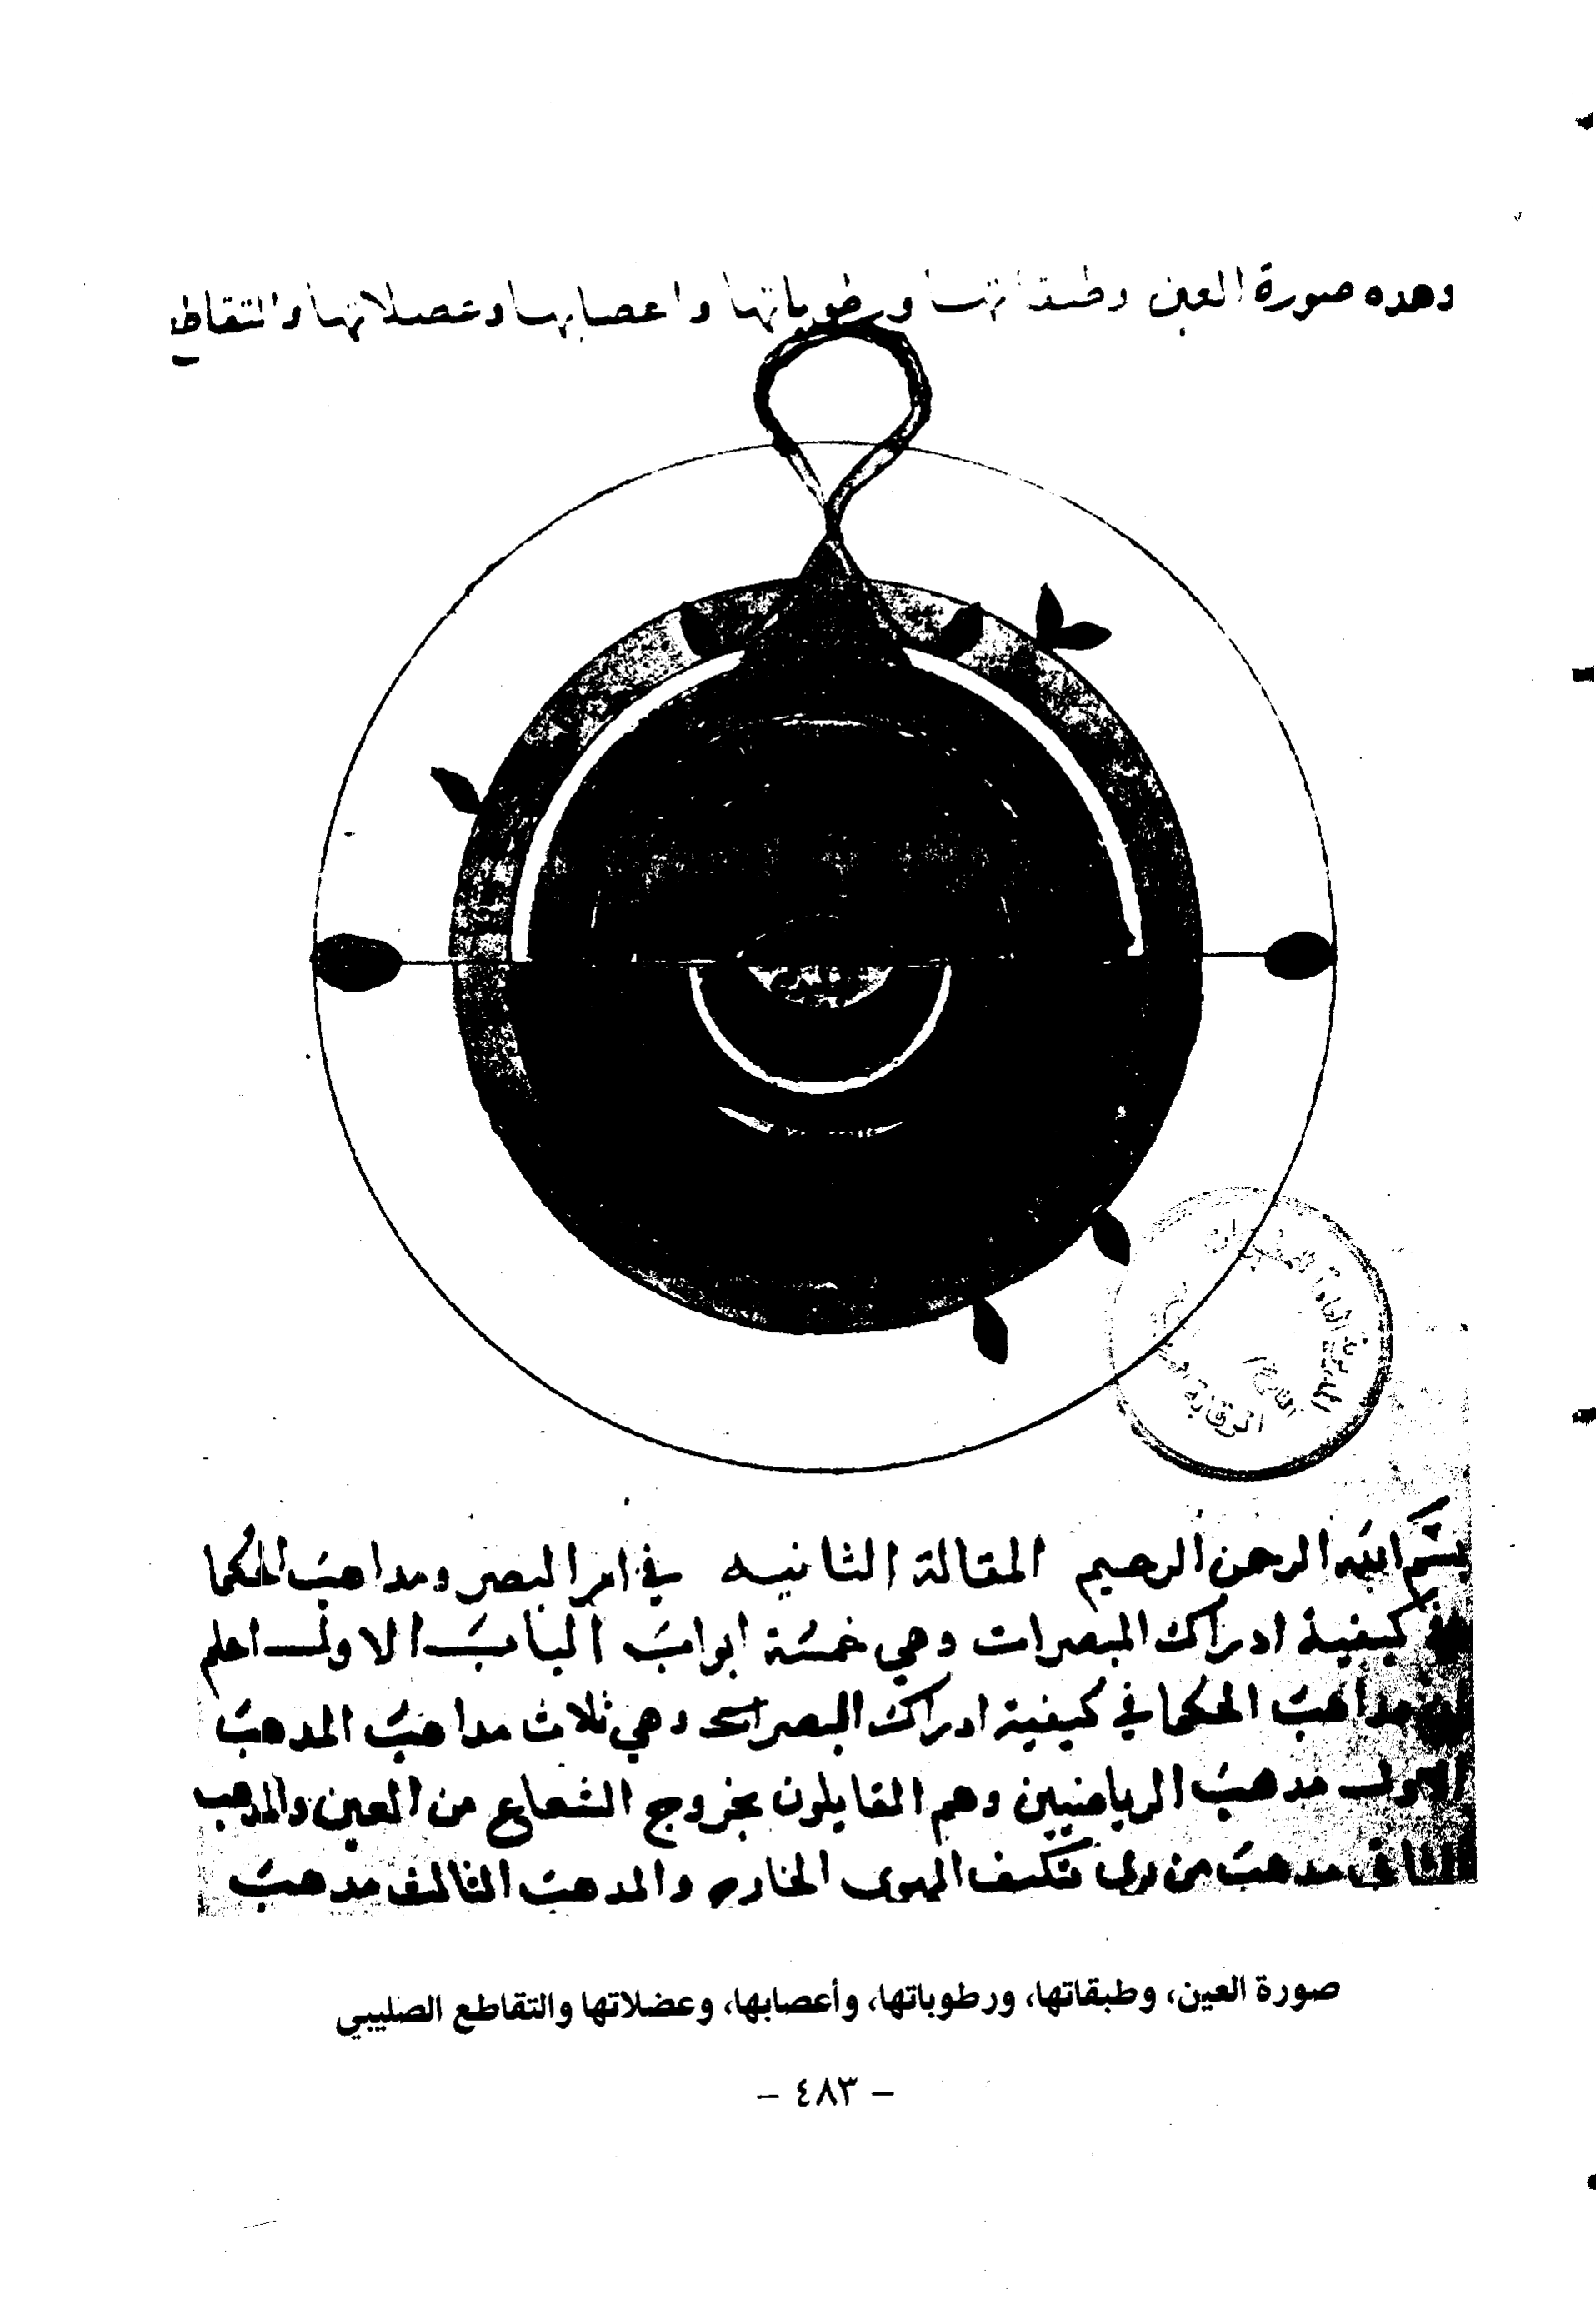 وهده صورة العين وطبقاتها ورطوباتها واعصابها وعضلاتها والتقاطع
بسم الله الرحمن الرحيم المقالة الثانيه في امر البصر ومداهب الحكما
في كيفية ادراك المبصرات وهي خمسة ابواب الباب الاول اعلم
ان مداهب الحكما في كيفية ادراك المبصرات وهي ثلاث مداهب المدهب
الاول مدهب الرياضيين وهم القايلون بخروج الشعاع من العين والمدهب
الثاني مدهب من يرى تكيف الهوى الخارج والمدهب الثالث مدهب
صورة العين، وطبقاتها، ورطوباتها، وأعصابها، وعضلاتها والتقاطع الصليبي
– ٤٨٣ –